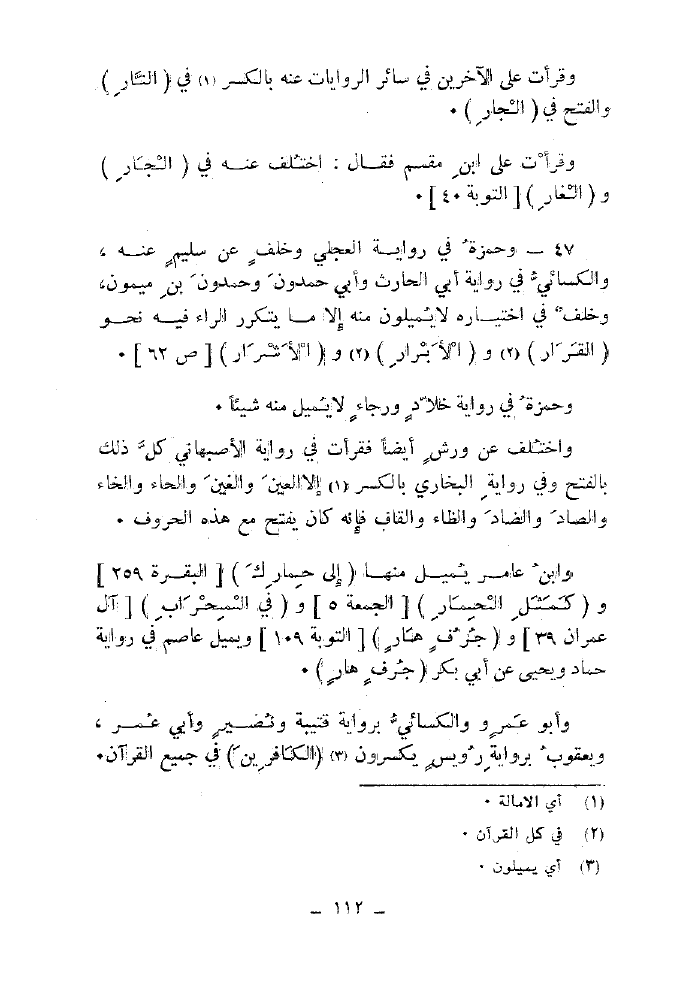 وقرأت على الآخرين في سائر الروايات عنه بالكسر (١) في ( النَّارِ )
والفتح في ( الْجارِ ) ٠
وقرأْت على ابنِ مقسم فقال : اختلف عنه في ( الْجَارِ )
و ( الْغارِ ) [ التوبة ٤٠ ] ٠
٤٧ – وحمزةُ في رواية العجلي وخلفٍ عن سليمٍ عنه ،
والكسائيُّ في رواية أبي الحارث وأبي حمدونَ وحمدونَ بنِ ميمون،
وخلفٌ في اختياره لايُميلون منه إلا ما يتكرر الراء فيه نحو
( القَرَار ) (٢) و ( الْأَبْرارِ ) (٢) و ( الْأَشْرَار ) [ ص ٦٢ ] ٠
وحمزةُ في رواية خلاّدٍ ورجاءٍ لايُميل منه شيئاً ٠
واختُلف عن ورشٍ أيضاً فقرأت في رواية الأصبهاني كلَّ ذلك
بالفتح وفي روايةِ البخاري بالكسر (١) إلاالعينَ والغينَ والحاء والخاء
والصادَ والضادَ والظاء والقاف فإنه كان يفتح مع هذه الحروف ٠
وابنُ عامر يُميل منها ( إلى حِمارِكَ ) [ البقرة ٢٥٩ ]
و ( كَمَثَلِ الْحِمَارِ ) [ الجمعة ٥ ] و ( في الْمِحْرَابِ ) [ آل
عمران ٣٩ ] و ( جُرُفٍ هَارٍ ) [ التوبة ١٠٩ ] ويميل عاصم في رواية
حماد ويحيى عن أبي بكر ( جُرفٍ هارٍ ) ٠
وأبو عَمرٍو والكسائيُّ برواية قتيبة ونُضَيرٍ وأبي عُمر ،
ويعقوبُ بروايةِ رُويسٍ يكسرون (٣) (الكافرِينَ) في جميع القرآن٠
(١) أي الامالة ٠
(٢) في كل القرآن ٠
(٣) أي يميلون ٠
– ١١٢ –